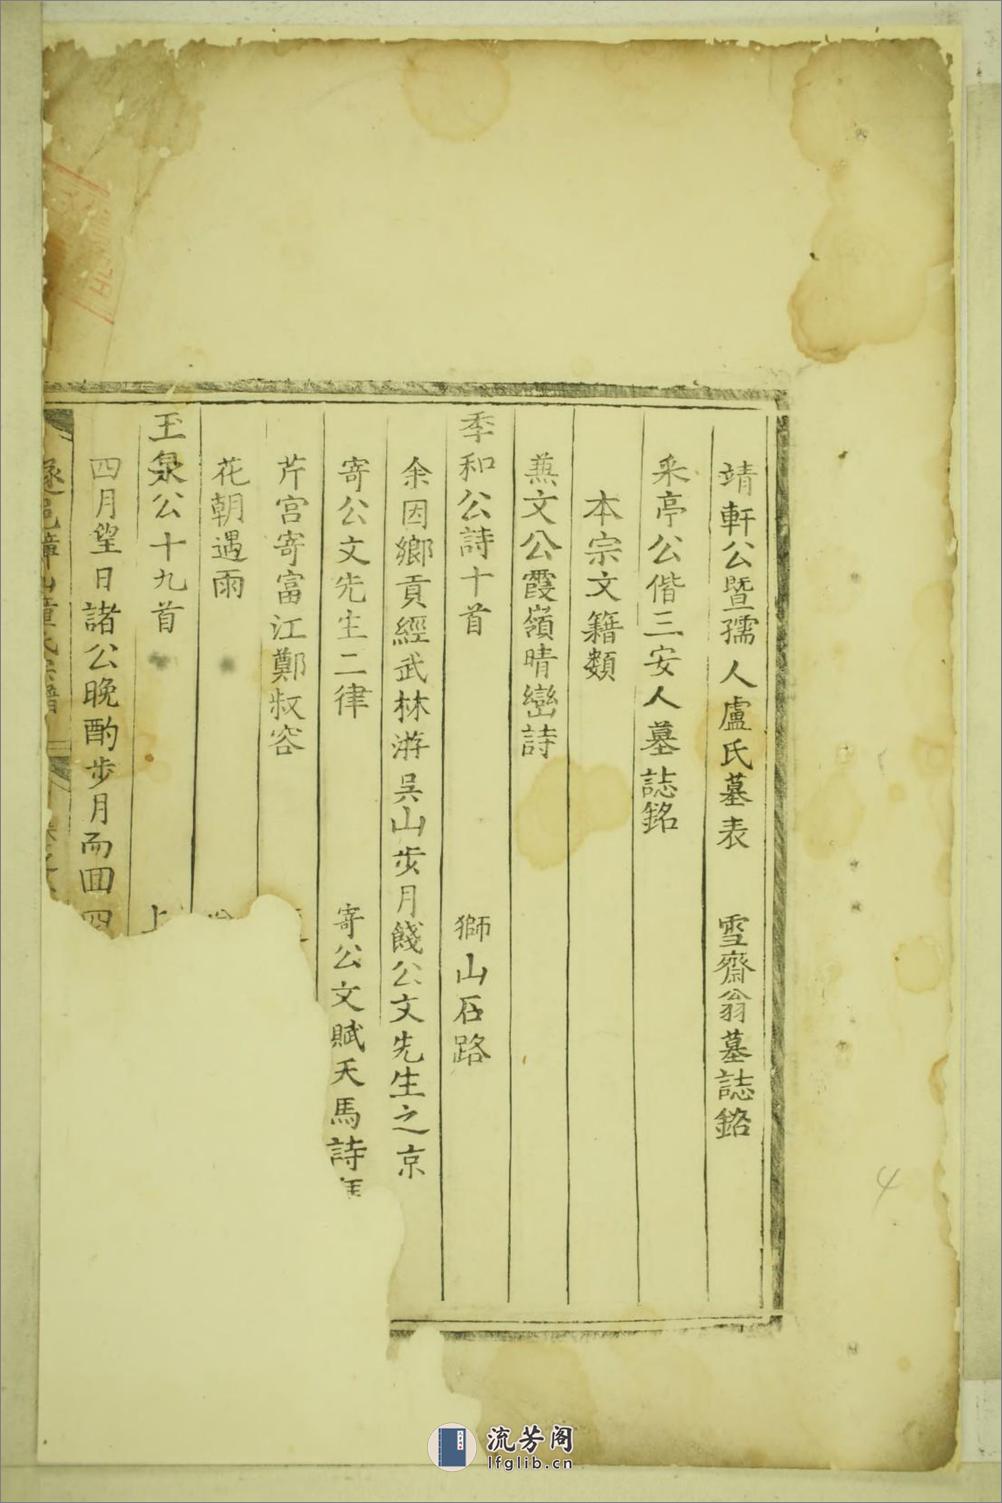 靖軒公暨孺人盧氏墓表 雪齋翁墓誌銘
釆亭公偕三安人墓誌銘
本宗文籍類
蕉文公霞嶺晴巒詩
季和公詩十首 獅山石路
余因鄉貢經武林游吳山步月餞公文先生之京
寄公文先生二律 寄公文賦天馬詩
芹宮寄富江鄭叔容
花朝遇雨
玉泉公十九首 上
四月望日諸公晚酌步月而回四
遂邑
4
流芳阁
lfglib.cn